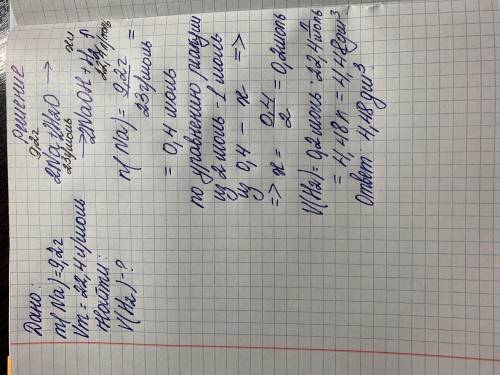 Дано:
m(Na)=9,2г
Vm = 22,4 л/моль
Найти:
V(H₂)-?
Решение
9,2г
2Na+2H₂O →
23г/моль
22,4л/моль
→2NaOH + H₂↑
n(Na) = 9,2г / 23г/моль =
= 0,4 моль
по уравнению реакции
из 2 моль - 1 моль
из 0,4 - x =>
=> x = 0,4 / 2 = 0,2моль
V(H₂)= 0,2 моль · 22,4 л/моль
= 4,48 л = 4,48дм³
Ответ: 4,48дм³